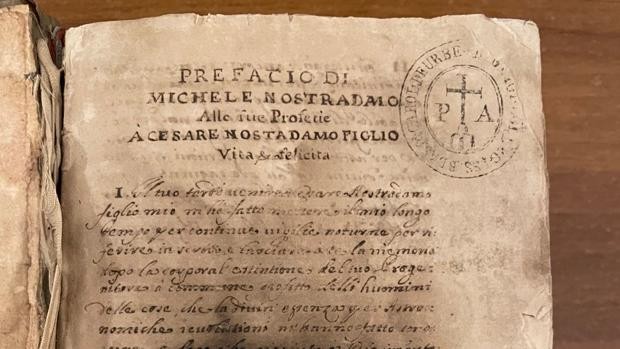 PREFACIO DI
MICHELE NOSTRADAMO
Alle sue Profetie
À CESARE NOSTADAMO FIGLIO
Vita & felicita
P A
1. Il tuo tardo venire Cesare Nostradamo
figlio mio m'ha fatto mettere il mio longo
tempo per continue vigilie noturne per ri
ferire in e lasciare a te la memoria
dopo la corporal estintione del tuo Proge
nitore à commune profitto delli huomini
delle cose, che la divin essenza per Astro
nomiche revolutioni m'hanno fatto